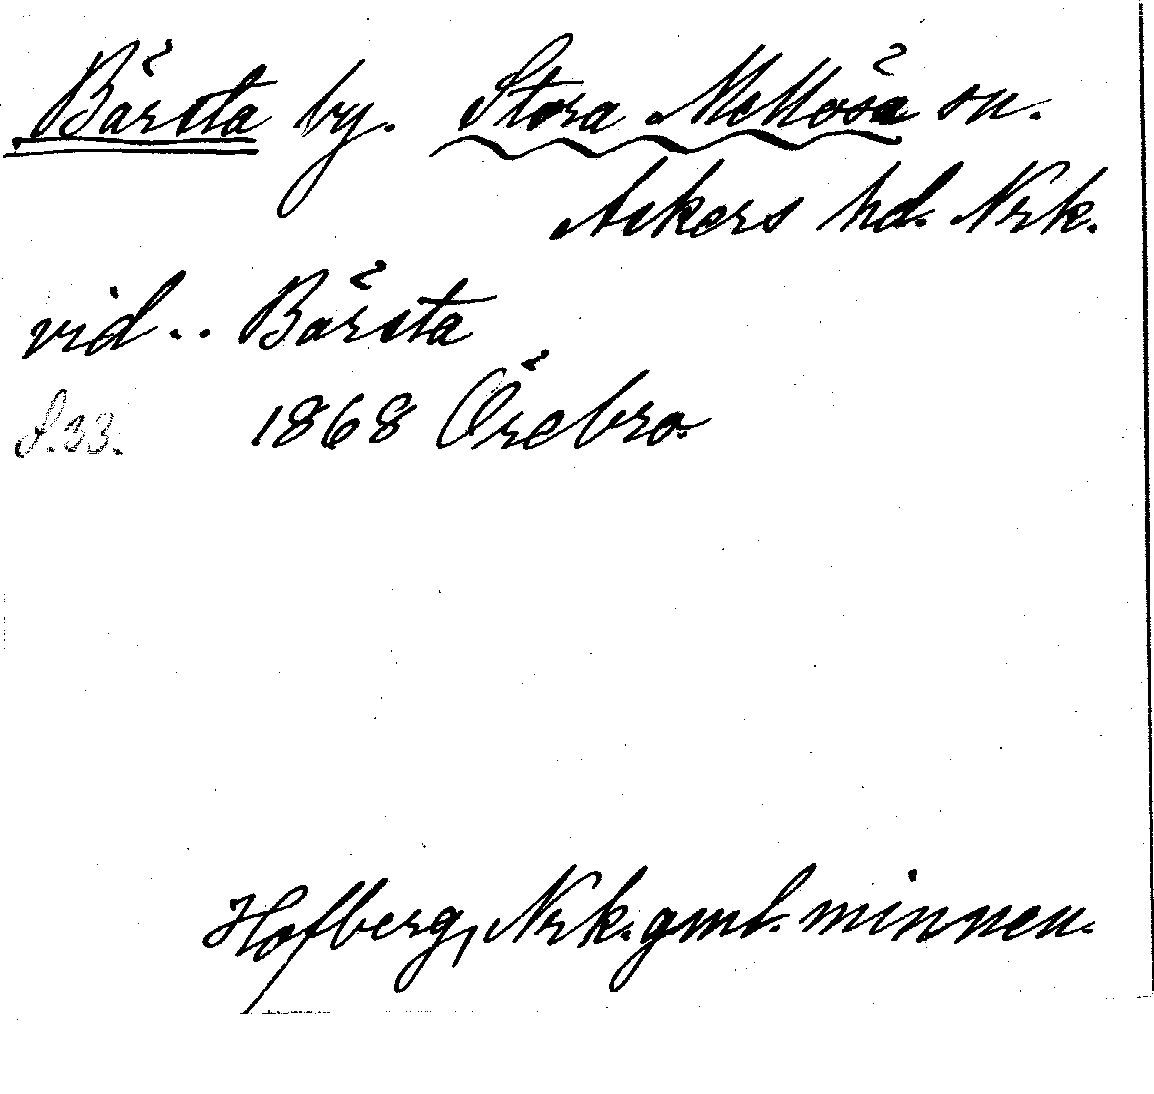 Bärsta by. Stora Mellösa sn.
Askers hd. Nrk.
vid .. Bärsta
S. 33. 1868 Örebro.
Hofberg, Nrk. gml. minnen.